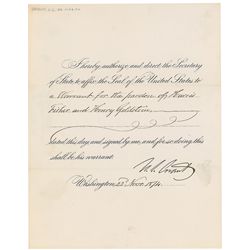 I hereby authorize and direct the Secretary
of State to affix the Seal of the United States to
a Warrant for the pardon of Harris
Fisher and Henry Goldstein,
dated this day and signed by me, and for so doing, this
shall be his warrant.
U.S. Grant
Washington, 23 Novr. 1874.